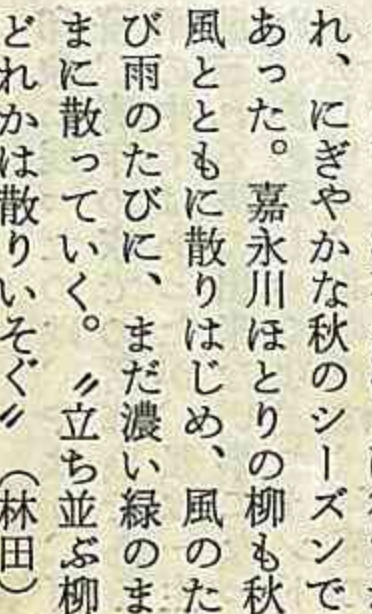 れ、にぎやかな秋のシーズンで
あった。嘉永川ほとりの柳も秋
風とともに散りはじめ、風のた
び雨のたびに、まだ濃い緑のま
まに散っていく。〃立ち並ぶ柳
どれかは散りいそぐ〃（林田）